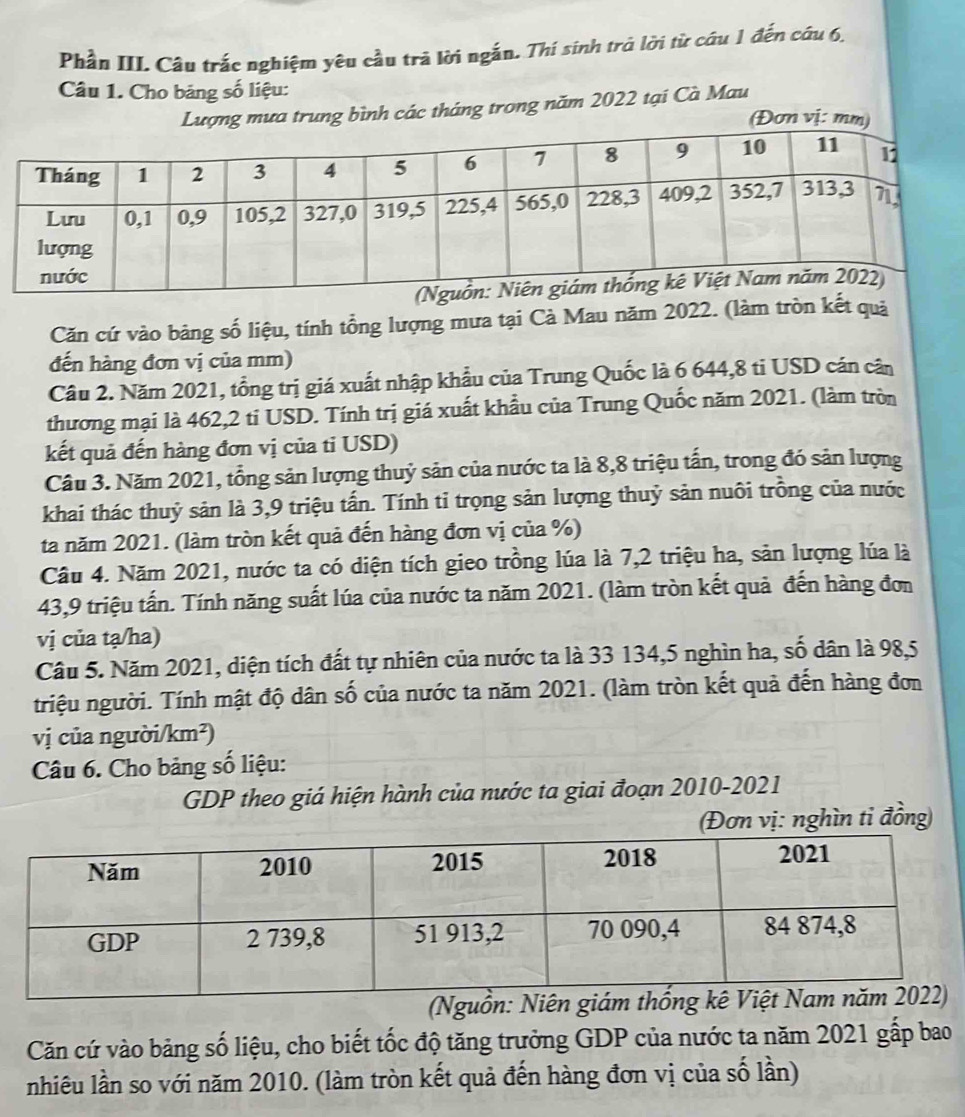 Phần III. Câu trắc nghiệm yêu cầu trả lời ngắn. Thí sinh trả lời từ câu 1 đến câu 6.
Câu 1. Cho bảng số liệu:
Lượng mưa trung bình các tháng trong năm 2022 tại Cà Mau
(Đơn vị: mm)
Tháng 1 2 3 4 5 6 7 8 9 10 11 12
Lưu 0,1 0,9 105,2 327,0 319,5 225,4 565,0 228,3 409,2 352,7 313,3 71,
lượng
nước
(Nguồn: Niên giám thống kê Việt Nam năm 2022)
Căn cứ vào bảng số liệu, tính tổng lượng mưa tại Cà Mau năm 2022. (làm tròn kết quả
đến hàng đơn vị của mm)
Câu 2. Năm 2021, tổng trị giá xuất nhập khẩu của Trung Quốc là 6 644,8 tỉ USD cán cân
thương mại là 462,2 tỉ USD. Tính trị giá xuất khẩu của Trung Quốc năm 2021. (làm tròn
kết quả đến hàng đơn vị của tỉ USD)
Câu 3. Năm 2021, tổng sản lượng thuỷ sản của nước ta là 8,8 triệu tấn, trong đó sản lượng
khai thác thuỷ sản là 3,9 triệu tấn. Tính tỉ trọng sản lượng thuỷ sản nuôi trồng của nước
ta năm 2021. (làm tròn kết quả đến hàng đơn vị của %)
Câu 4. Năm 2021, nước ta có diện tích gieo trồng lúa là 7,2 triệu ha, sản lượng lúa là
43,9 triệu tấn. Tính năng suất lúa của nước ta năm 2021. (làm tròn kết quả đến hàng đơn
vị của tạ/ha)
Câu 5. Năm 2021, diện tích đất tự nhiên của nước ta là 33 134,5 nghìn ha, số dân là 98,5
triệu người. Tính mật độ dân số của nước ta năm 2021. (làm tròn kết quả đến hàng đơn
vị của người/km²)
Câu 6. Cho bảng số liệu:
GDP theo giá hiện hành của nước ta giai đoạn 2010-2021
(Đơn vị: nghìn tỉ đồng)
Năm 2010 2015 2018 2021
GDP 2 739,8 51 913,2 70 090,4 84 874,8
(Nguồn: Niên giám thống kê Việt Nam năm 2022)
Căn cứ vào bảng số liệu, cho biết tốc độ tăng trưởng GDP của nước ta năm 2021 gấp bao
nhiêu lần so với năm 2010. (làm tròn kết quả đến hàng đơn vị của số lần)